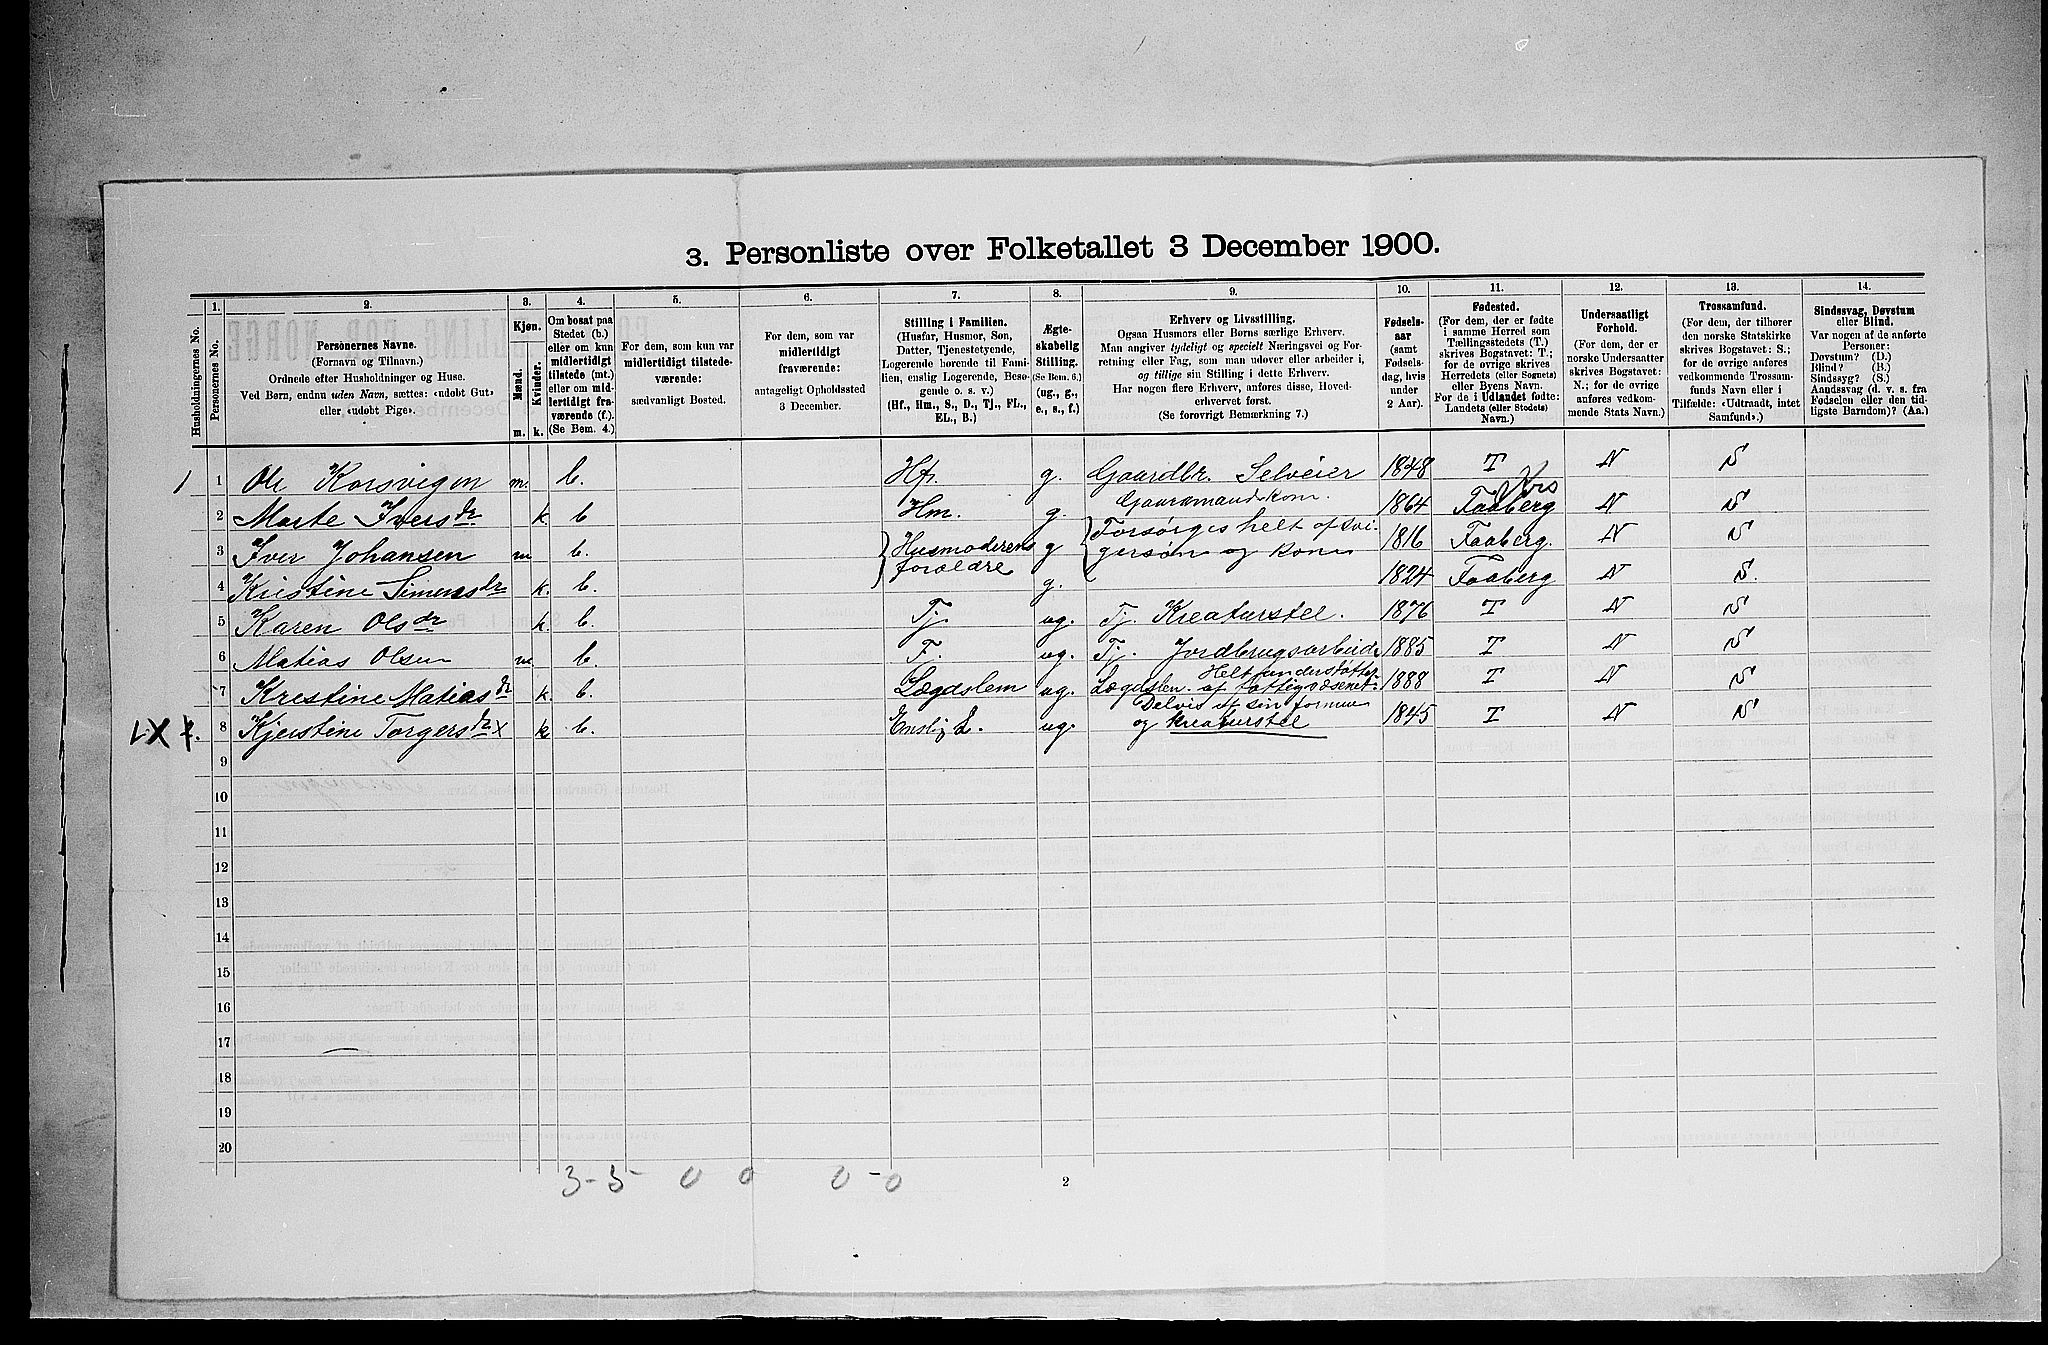 3. Personliste over Folketallet 3 December 1900.
Husholdningernes No.
1.
Personernes No.
2.
Personernes Navne.
(Fornavn og Tilnavn.)
Ordnede efter Husholdninger og Huse.
Ved Børn, endnu uden Navn, sættes: «udøbt Gut»
eller, «udøbt Pige».
3.
Kjøn.
Mænd.
Kvinder.
m.
k.
4.
Om bosat paa
Stedet (b.)
eller om kun
midlertidigt
tilstede (mt.)
eller om mid-
lertidigt fra-
værende (f.).
(Se Bem. 4.)
5.
For dem, som kun var
midlertidigt tilstede-
værende:
sædvanligt Bosted.
6.
For dem, som var
midlertidigt
fraværende:
antageligt Opholdssted
3 December.
7.
Stilling i Familien.
(Husfar, Husmor, Søn,
Datter, Tjenestetyende,
Logerende hørende til Fami-
lien, enslig Logerende, Besø-
gende o. s. v.)
(Hf., Hm., S., D., Tj., FL.,
EL., B.)
8.
Ægte-
skabelig
Stilling.
(Se Bem. 6.)
(ug., g.,
e., s., f.)
9.
Erhverv og Livsstilling.
Ogsaa Husmors eller Børns særlige Erhverv.
Man angiver tydeligt og specielt Næringsvei og For-
retning eller Fag, som man udøver eller arbeider i,
og tillige sin Stilling i dette Erhverv.
Har nogen flere Erhverv, anføres disse, Hoved-
erhvervet først.
(Se forøvrigt Bemærkning 7.)
10.
Fødsels-
aar
(samt
Fødsels-
dag, hvis
under
2 Aar).
11.
Fødested.
(For dem, der er fødte
i samme Herred som
Tællingsstedets (T.)
skrives Bogstavet: T.;
for de øvrige skrives
Herredets (eller Sognets)
eller Byens Navn.
For de i Udlandet fødte:
Landets (eller Stedets)
Navn.)
12.
Undersaatligt
Forhold.
(For dem, der er
norske Undersaatter
skrives Bogstavet:
N.; for de øvrige
anføres vedkom-
mende Stats Navn.)
13.
Trossamfund.
(For dem, der tilhører
den norske Statskirke
skrives Bogstavet: S.;
for de øvrige anføres
vedkommende Trossam-
funds Navn eller i
Tilfælde: «Udtraadt, intet
Samfund».)
14.
Sindssvag, Døvstum
eller Blind.
Var nogen af de anførte
Personer:
Døvstum? (D.)
Blind? (B.)
Sindssyg? (S.)
Aandssvag (d. v. s. fra
Fødselen eller den tid-
ligste Barndom)? (Aa.)
1 1 Ole Korsvigen m. b. Hf. g. Gaardbr. Selveier 1848 T N S
2 Marte Iversdr k. b Hm. g. Gaardmandskone. 1864 Faaberg N S
3 Iver Johansen m b. Husmoderens g Forsørges helt af svi- 1816 Faaberg. N S
forældre gersøn og kone
4 Kristine Simensdr k. b. g. 1824 Faaberg N S.
5 Karen Olsdr k. b. Tj. ug. Tj. Kreaturstel. 1876 T N S
6 Matias Olsen m b. ug. Tj. Jordbrugsarbeide 1885 T N S
7 Kristine Matiasdr k. b. Lægdslem ug. Lægdslem. Helt understøttet af fattigvæsenet. 1888 T N S
8 Kjerstine Torgersdr x k b. Enslig L. ug. Delvis af sin formue og kreaturstel 1845 T N S
9
10
11
12
13
14
15
16
17
18
19
20
3-5 0 0 0-0
2